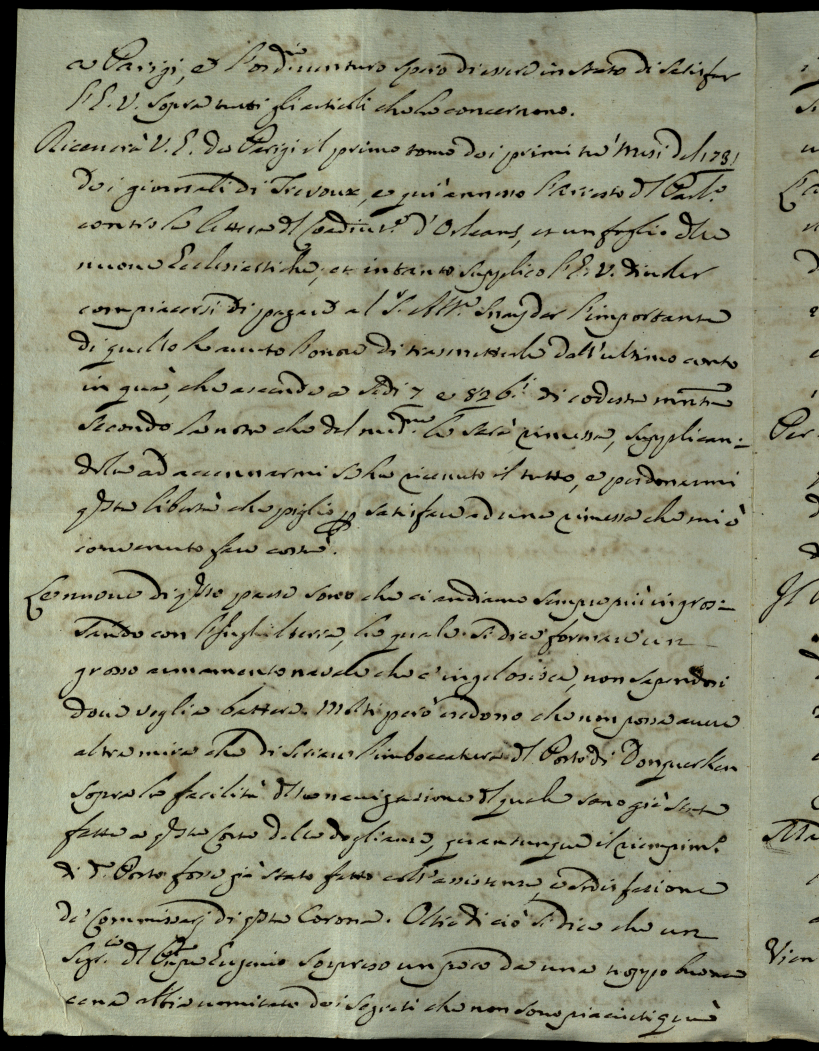 a Parigi, e l'ord.io venturo spero di essere in stato di satisfar
l'E. V. sopra tutti gli articoli che la concernono.
Riceverà V. E. da Parigi il primo tomo dei primi tre mesi del 1731
de i giornali di Trevoux, e qui annesso l'Arresto del Parl.o
contro la lettera del Coadiut.e d'Orleans, et un foglio delle
nuove Ecclesiastiche, et intanto supplico l'E. V. di voler
compiacersi di pagare al S.r Snayder l'importante
di quello ho avuto l'onore di trasmetterle dall'ultimo conto
in quà, che ascende a 7 e 82 di codesta
secondo la nota che dal med.mo le sarà rimessa, supplican=
dola ad accennarmi se ha ricevuto il tutto, e perdonarmi
q.sta libertà che piglio p satisfare ad una rimessa che mi è
convenuto fare costà.
Le nuove di q.sto paese sono che ci andiamo sempre più ingros=
sando con l'Inghilterra, la quale si dice formare un
grosso armamento navale che c'ingelosisce, non sapendosi
dove voglia battere. Molti però credono che non possa avere
altra mira che di serrare l'imboccatura del Porto di Donquerken
sopra la facilità della navigazione del quale sono già state
fatte a q.sta Corte delle doglianze, quantunque il riempim.to
di d.o Porto fosse già stato fatto coll'assistenza, e satisfazione
de' Commissarj di q.sta Corona. Oltre di ciò si dice che un
Segr.io del Pn.pe Eugenio sorpreso un poco da una troppo buona
cena abbia vomitato dei segreti che non sono piaciuti quà
Per
Vien